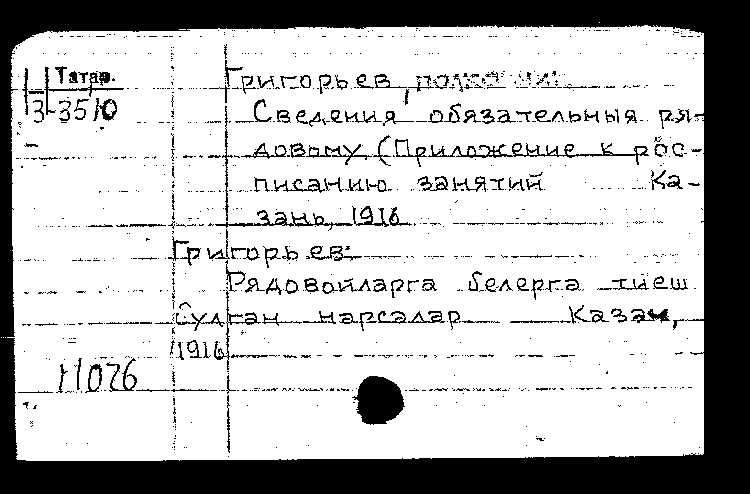 Татар.
3-3510
Григорьев, полковник.
Сведения обязательныя ря-
довому. (Приложение к рос-
писанию занятий Ка-
зань, 1916
Григорьев:
Рядовойларга белерга тиеш
булган нарсалар Казан,
1916
11026